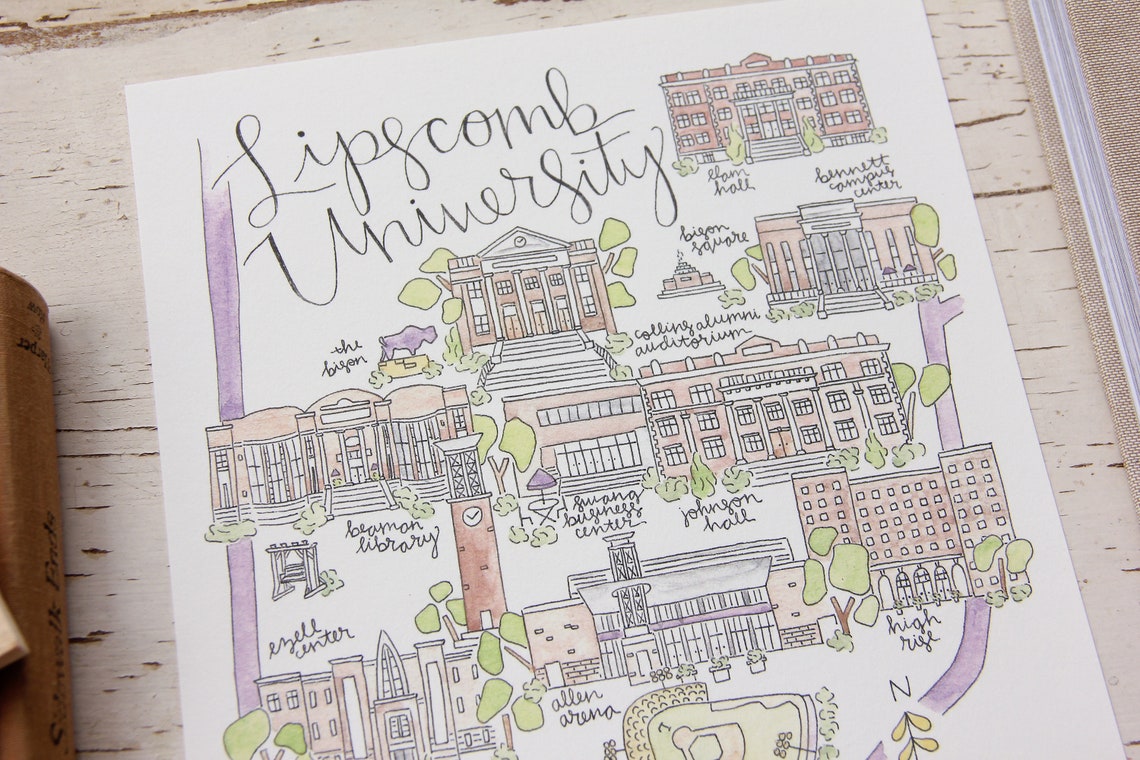 Lipscomb
University
elam
hall
bennett
campus
center
bison
square
the
bison
collins alumni
auditorium
beaman
library
swang
business
center
johnson
hall
high
rise
ezell
center
allen
arena
N
Sidewalk Ends